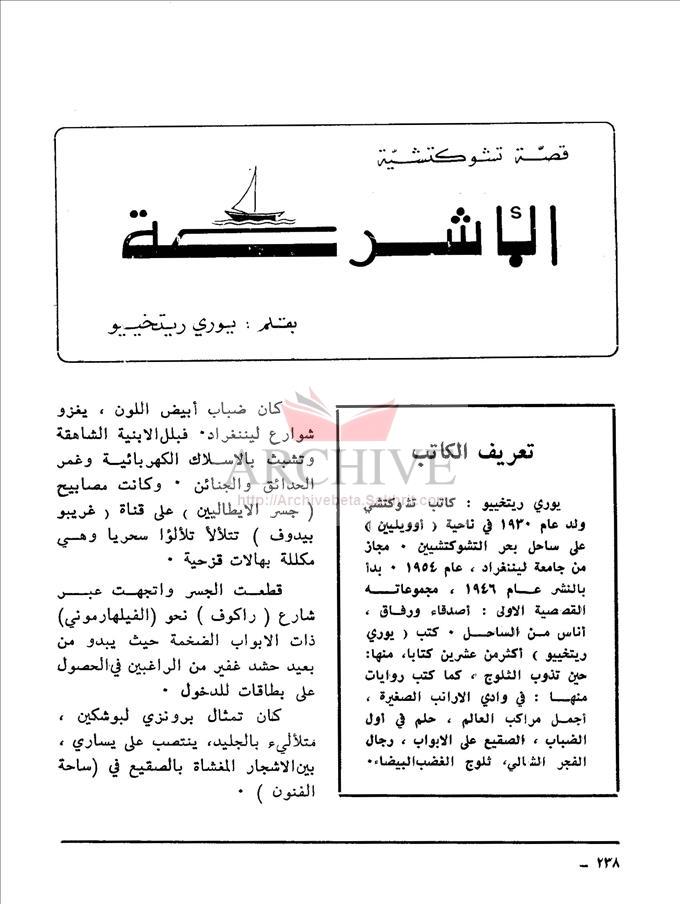 قصّة تشوكتشيّة
الأشرعة
بقلم : يوري ريتخييو
تعريف الكاتب
يوري ريتغييو : كاتب تشوكتشي
ولد عام ١٩٣٠ في ناحية ( أوويليين )
على ساحل بحر التشوكتشيين ٠ مجاز
من جامعة ليننغراد ، عام ١٩٥٤ ٠ بدأ
بالنشر عام ١٩٤٦ ، مجموعاته
القصصية الاولى : أصدقاء ورفاق ،
أناس من الساحل ٠ كتب ( يوري
ريتغييو ) أكثر من عشرين كتابا، منها:
حين تذوب الثلوج ، كما كتب روايات
منها : في وادي الارانب الصغيرة ،
أجمل مراكب العالم ، حلم في أول
الضباب ، الصقيع على الابواب ، رجال
الفجر الشالي، ثلوج الغضب البيضاء٠
كان ضباب أبيض اللون ، يغزو
شوارع ليننغراد٠ فبلل الابنية الشاهقة
وتشبث بالاسلاك الكهربائية وغمر
الحدائق والجنائن ٠ وكانت مصابيح
( جسر الايطاليين ) على قناة ( غريبو
بيدوف ) تتلألأ تلألؤا سحريا وهي
مكللة بهالات قزحية ٠
قطعت الجسر واتجهت عبر
شارع ( راكوف ) نحو (الفيلهارموني)
ذات الابواب الضخمة حيث يبدو من
بعيد حشد غفير من الراغبين في الحصول
على بطاقات للدخول ٠
كان تمثال برونزي لبوشكين ،
متلأليء بالجليد، ينتصب على يساري ،
بين الاشجار المغشاة بالصقيع في (ساحة
الفنون ) ٠
ARCHIVE
http://Archivebeta.Sakhrit.com
٢٣٨ –